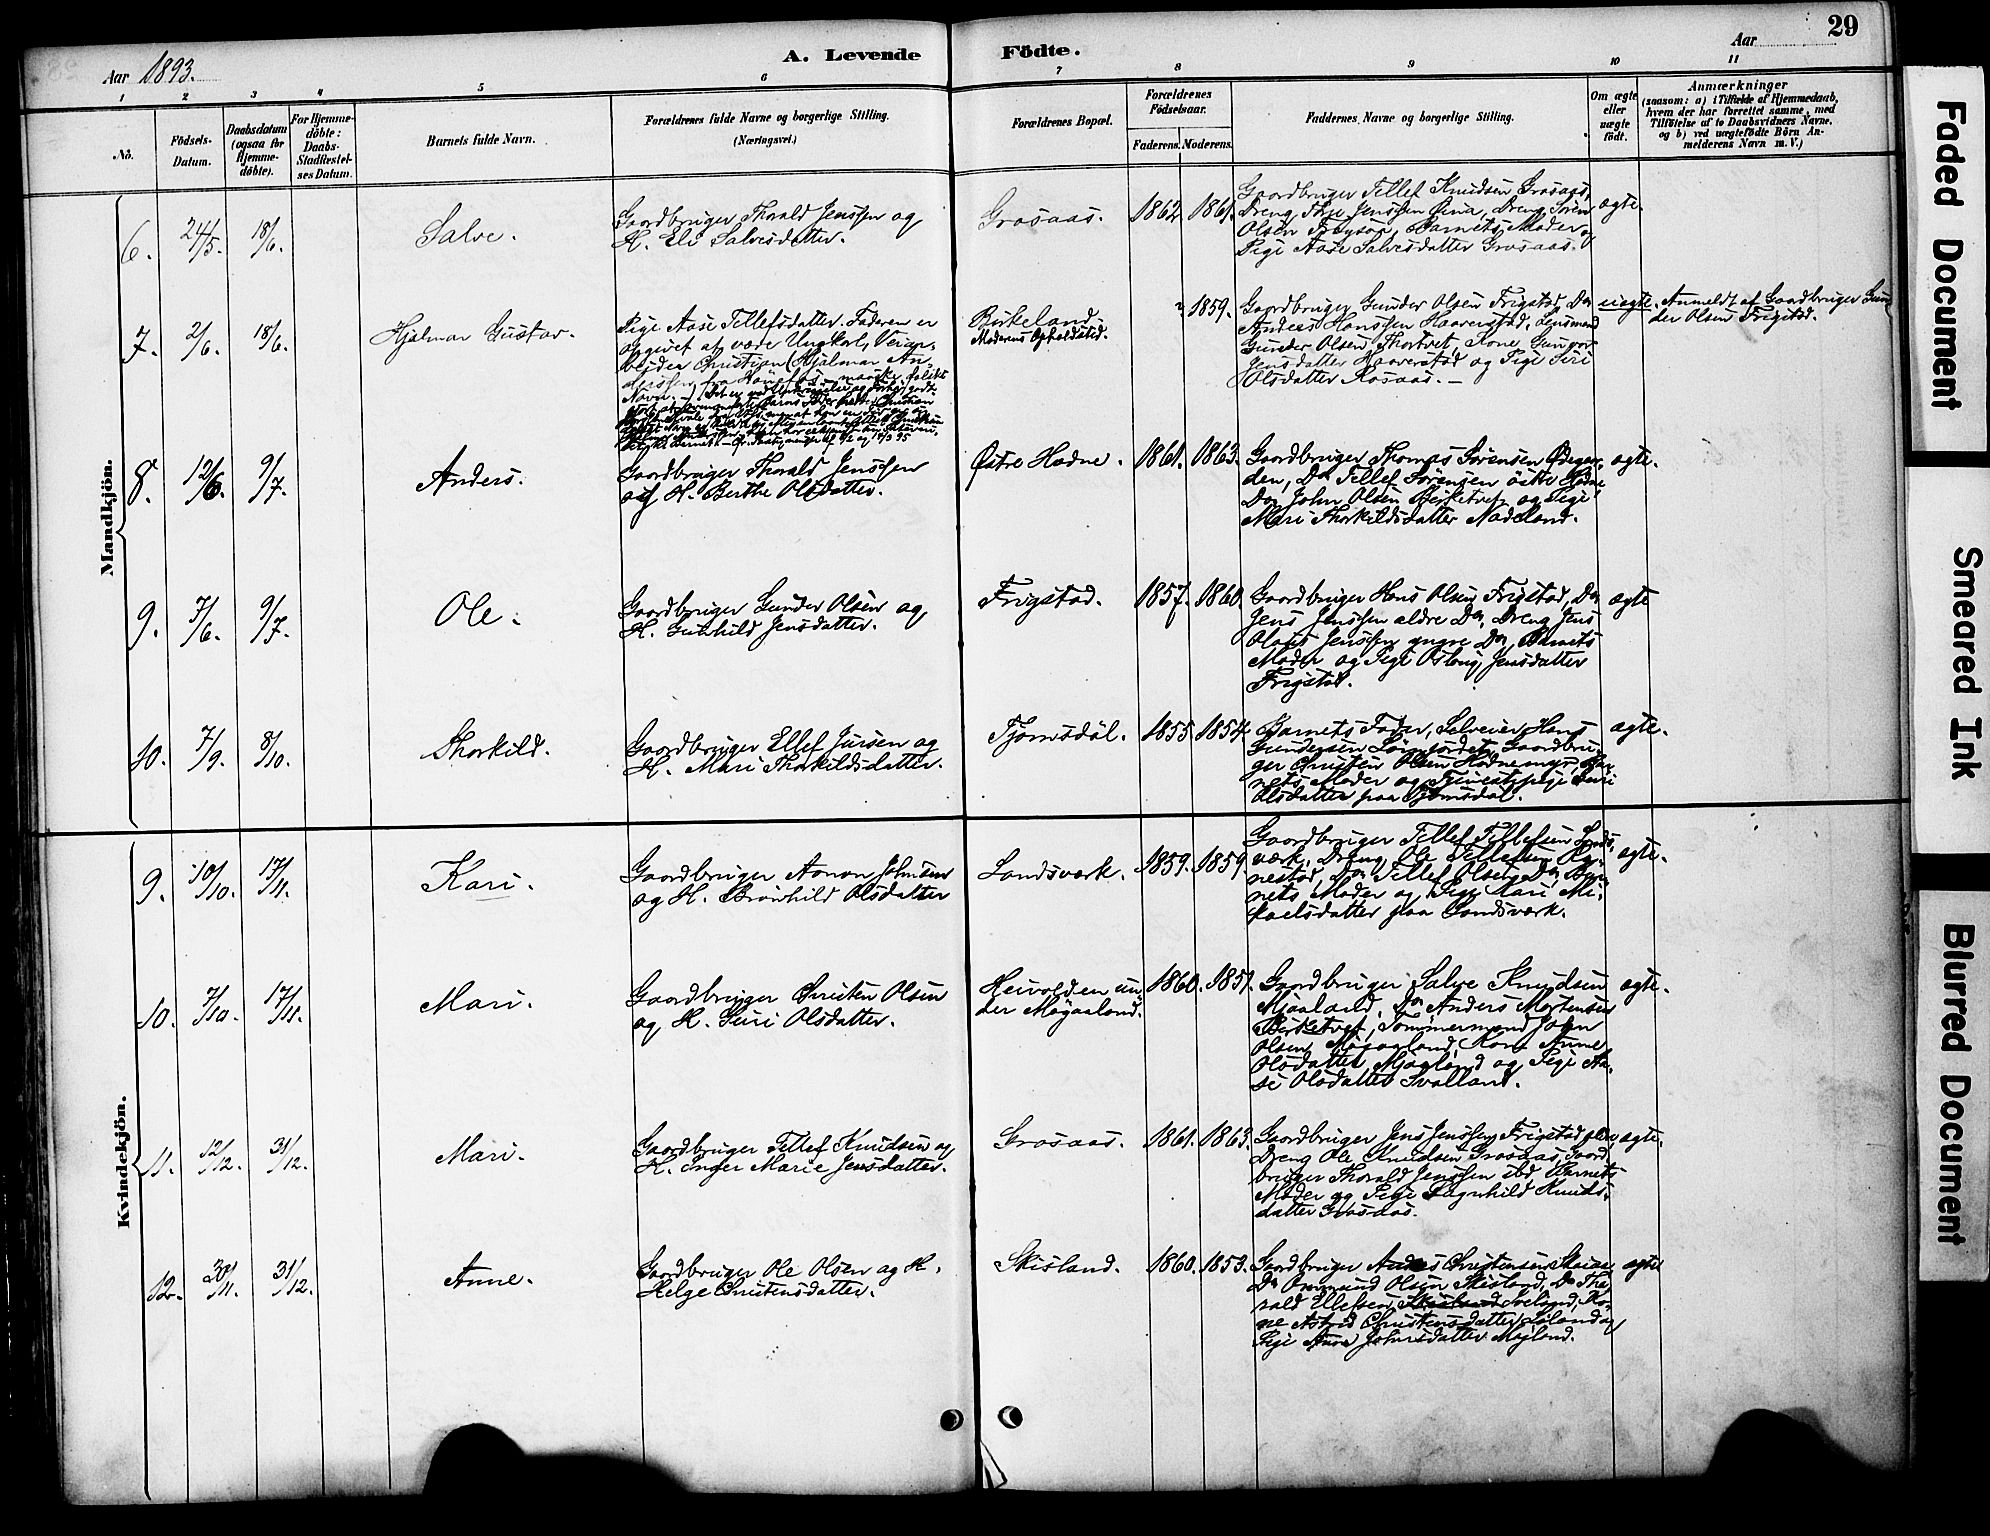 29
Aar 1893.
A. Levende Födte.
Aar
1 2 3 4 5 6 7 8 9 10 11
No.
Födsels-
Datum.
Daabsdatum
(ogsaa for
Hjemme-
døbte).
For Hjemme-
døbte:
Daabs-
Stadfæstel-
ses Datum.
Barnets fulde Navn.
Forældrenes fulde Navne og borgerlige Stilling.
(Næringsvei.)
Forældrenes Bopæl.
Forældrenes
Födselsaar.
Faderens. Moderens.
Faddernes Navne og borgerlige Stilling.
Om ægte
eller
uægte
født.
Anmærkninger
(saasom: a) i Tilfælde af Hjemmedaab,
hvem der har forrettet samme, med
Tilföielse af to Daabsvidners Navne,
og b) ved uægtefödte Börn An-
melderens Navn m. V.)
Mandkjön.
6. 24/5. 18/6. Salve.
Gaardbruger Thorald Jenssen og
H. Eli Salvesdatter.
Grosaas. 1862. 1861.
Gaardbruger Tellef Knudsen Grosaas,
Dreng Jenssen Dreng Søren
Olsen Barnets Moder og
Pige Aase Salvesdatter Grosaas.
ægte.
7. 2/6. 18/6. Hjalmar Gustav.
Pige Aase Tellefsdatter. Faderen er
opgivet at være Ungkarl,
beider Christian (Hjalmar An-
dersen) fra Hønefos maaske falskt
Navn.
Birkeland.
Moderens Opholdssted.
1859.
Gaardbruger Gunder Olsen Frigstad, Do
Anders Hanssen Haaverstad, Lensmand
Gunder Olsen Thortvet, Kone Gunvor
Jensdatter Haaverstad og Pige Siri
Olsdatter Rosaas.
uægte.
Anmeldt af Gaardbruger Gun-
der Olsen Frigstad.
8. 12/6. 9/7. Anders.
Gaardbruger Thorald Jenssen
og H. Berthe Olsdatter.
Østre Hodne. 1861. 1863.
Gaardbruger Thomas Sørensen Ødegaar-
den, Do Tellef Sørensen østre Hodne,
Do John Olsen Birketvet og Pige
Mari Thorkildsdatter Nadeland.
ægte.
9. 7/6. 9/7. Ole.
Gaardbruger Gunder Olsen og
H. Gunhild Jensdatter.
Frigstad. 1857. 1860.
Gaardbruger Hans Olsen Frigstad, Do
Jens Jenssen ældre Do, Dreng Jens
Olaus Jenssen yngre Do, Barnets
Moder og Pige Jensdatter
Frigstad.
ægte
10. 7/9. 8/10. Thorkild.
Gaardbruger Ellef Jursen og
H. Mari Thorkildsdatter.
Tjomsdal. 1855. 1854.
Barnets Fader, Selveier Hans
Gundersen Gaardbru-
ger Christen Olsen Hodnemyr, Bar-
nets Moder og Tjenestepige Siri
Olsdatter paa Tjomsdal.
ægte.
Kvindekjön.
9. 10/10. 17/11. Kari.
Gaardbruger Aanon Johnsen
og H. Brønhild Olsdatter
Landsverk. 1859. 1859.
Gaardbruger Tellef Tellefsen Lands-
værk, Dreng Ole Tellefsen
Do Tellef Olsen Do, Bar-
nets Moder og Pige Mari Mi-
kaelsdatter paa Landsværk.
ægte.
10. 7/10. 17/11. Mari.
Gaardbruger Christen Olsen
og H. Siri Olsdatter.
Heivolden un-
der Møgaaland.
1860. 1851.
Gaardbruger Salve Knudsen
Mjaaland, Do Anders Mortensen
Birketvet, Tømmermand John
Olsen Møgaaland, Kone Anne
Olsdatter Mjaaland og Pige Aa-
se Olsdatter Svalland.
ægte.
11. 12/12. 31/12. Mari.
Gaardbruger Tellef Knudsen og
H. Inger Marie Jensdatter.
Grosaas. 1861. 1863.
Gaardbruger Jens Jenssen Frigstad
Dreng Ole Knudsen Grosaas, Gaard-
bruger Thorald Jenssen ibd, Barnets
Moder og Pige Ragnhild Knuds-
datter Grosaas.
ægte.
12. 30/11. 31/12. Anne.
Gaardbruger Ole Olsen og H.
Helge Christensdatter.
Skisland. 1860. 1853.
Gaardbruger Anders Christensen
Do Olsen Skisland, Do Tho-
rald Ellefsen Ko-
ne Astrid Christensdatter og
Pige Anne Johnsdatter Mjaland.
ægte
Faded Document
Smeared Ink
Blurred Document